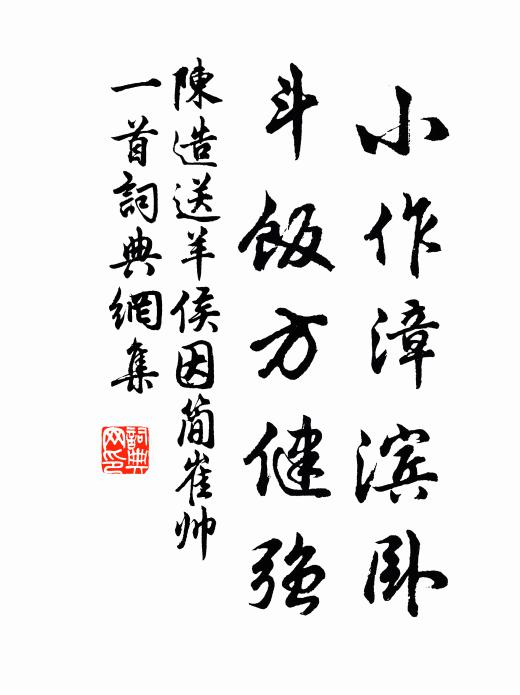 小作漳滨卧
斗飯方健强
陳造送羊侯因簡崔帅
一首詞典網集
詞典
网印